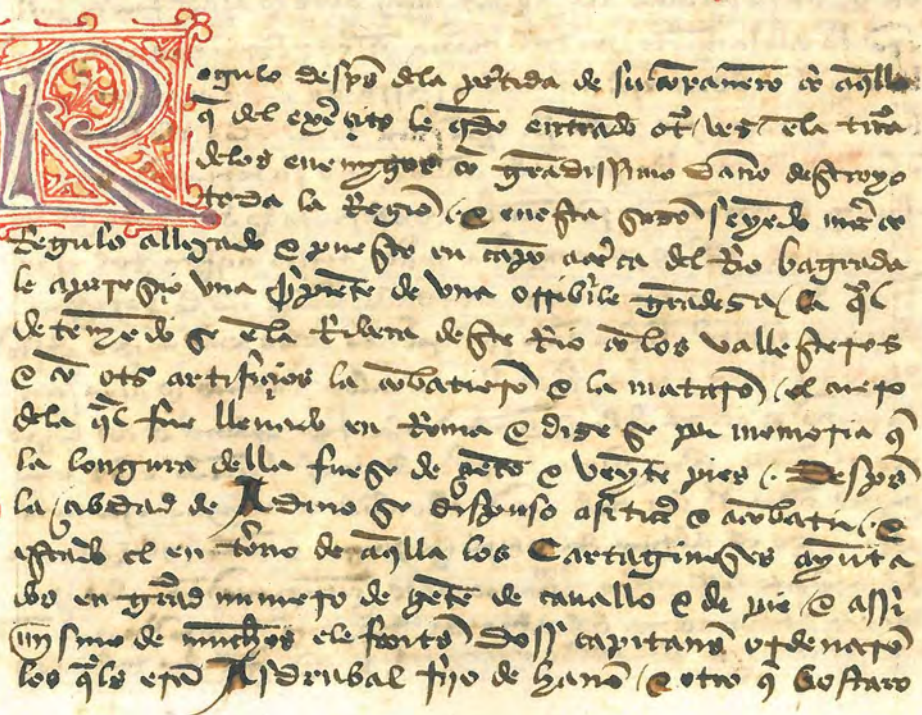 Regulo despŝ dela ptida de su conpañero cõ aq̃llo
q̃ del exẽrçito le q̃do entrãdo ot̃ ves ẽla tirã
delos enemygos cõ grãdissimo daño destroyo
toda la Regiõ / & en esta sazõ seyẽdo m̃r co
Regulo allegado & puesto en cãpo açerca del Rio bagrada
le aparesçio una s̃piẽte de una orribile grãdeza / la q̃l
detenyẽdo se ẽla Ribera deste Rio cõ los vallesteros
& cõ ots̃ artifiçios la cõbatierõ & la matarõ / el cuero
dela q̃l fue lleuado en Roma & dize se por memoria q̃
la longura della fuese de çiẽto & veynte pies / Despŝ
la çibdad de Adino se dispuso asitiar & a cõbatir / &
estãdo el en tõrno de aq̃lla los Cartagineses ayũta
dos en grãd numero de gẽte de cauallo & de pie & assi
mjsmo de muchos elefantes Dos capitanes ordenarõ
los q̃les erã Asdrubal fijo de hanõ / & otro q̃ bostaro